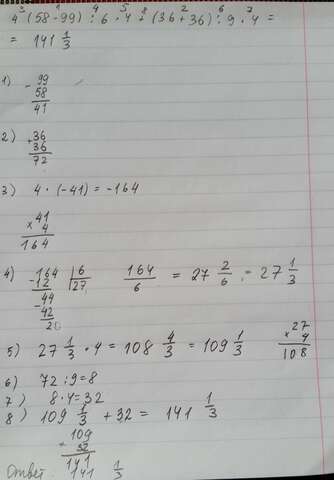 4 (58-99) : 6 · 4 + (36+36) : 9 · 4 =
= 141 1/3
1) - 99
58
41
2) + 36
36
72
3) 4 · (-41) = -164
× 41
4
164
4) 164 | 6
-12 | 27
-44
42
2
164/6 = 27 2/6 = 27 1/3
5) 27 1/3 · 4 = 108 4/3 = 109 1/3
× 27
4
108
6) 72 : 9 = 8
7) 8 · 4 = 32
8) 109 1/3 + 32 = 141 1/3
+ 109
32
141
Ответ. 141 1/3